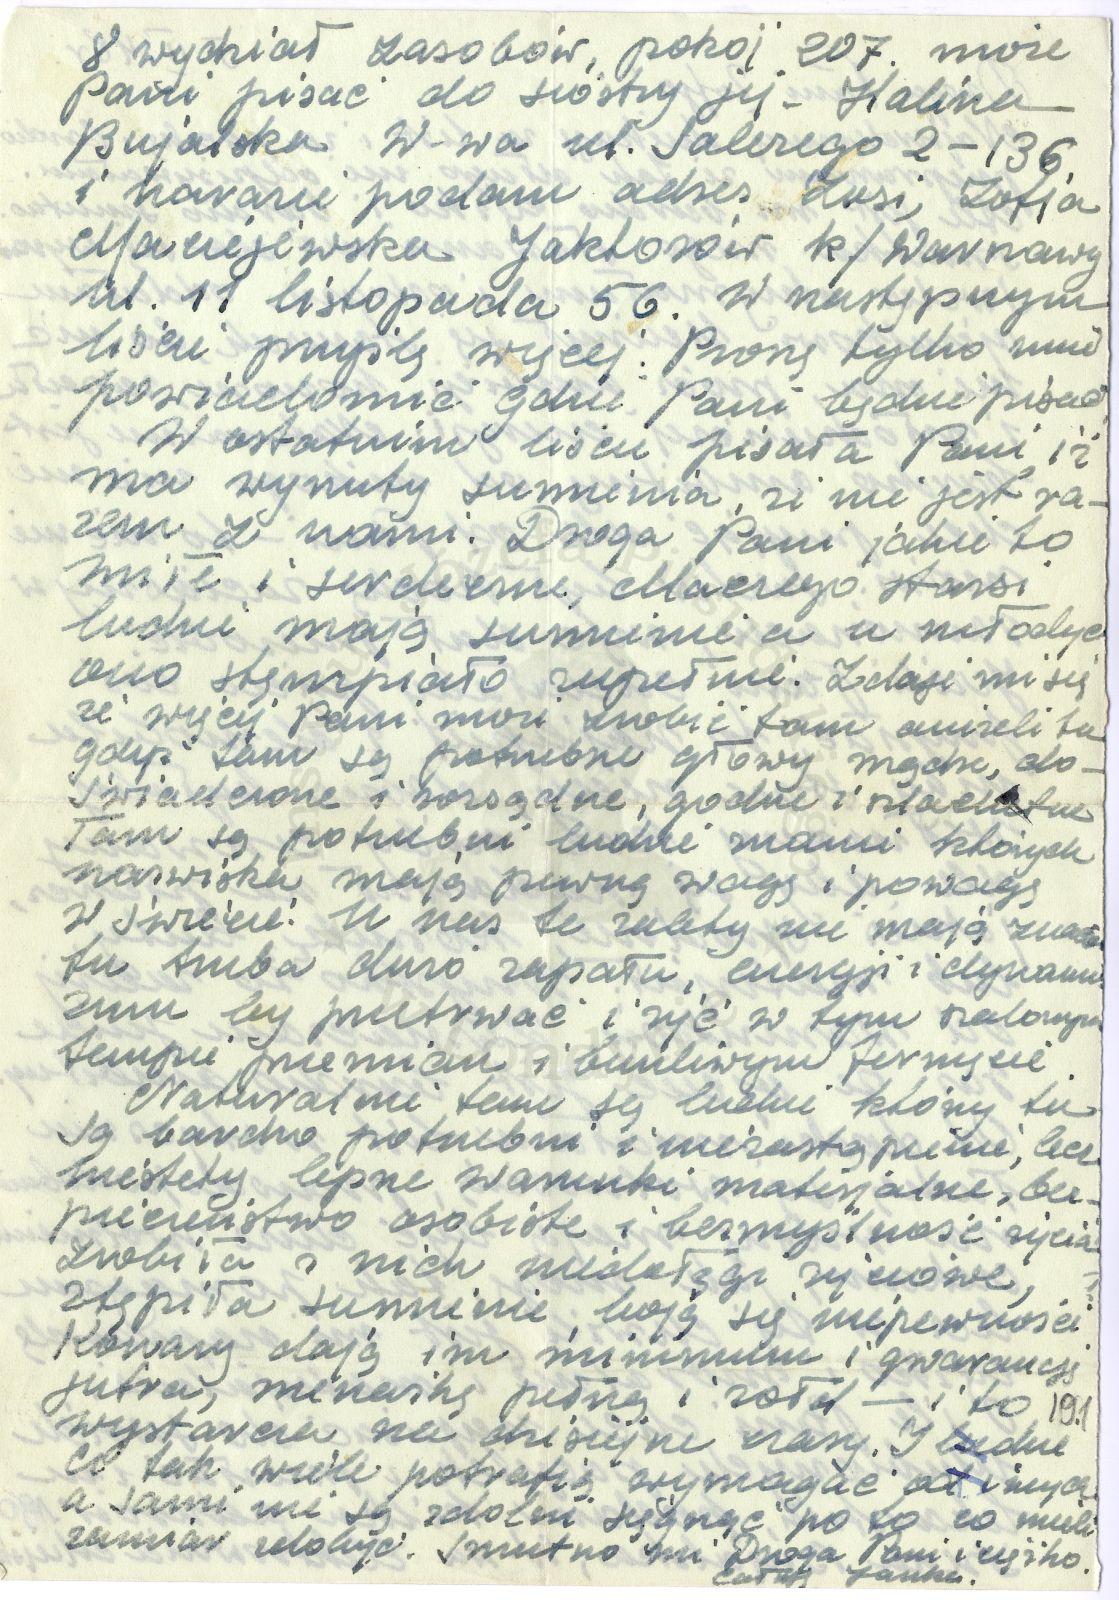 8 wydział zasobów, pokój 207. może
Pani pisać do siostry jej – Halina
Bujalska W-wa ul. Salezego 2 – 136
i narazie podam adres Zosi, Zofja
Maciejewska Jaktorów k/Warszawy
ul. 11 listopada 56. W następnym
liście prześlę więcej. Proszę tylko mnie
powiadomić gdzie Pani będzie pisać.
W ostatnim liście pisała Pani, iż
ma wyrzuty sumienia, że nie jest ra-
zem z nami. Droga Pani jakie to
miłe i serdeczne, dlaczego starsi
ludzie mają sumienie a u młodych
ono stęmpiało zupełnie. Zdaje mi się
że więcej Pani może zrobić tam aniżeli tu
gdyż tam są potrzebne głowy mądre, do-
świadczone i rozsądne, godne i szlachetne
Tam są potrzebni ludzie znani których
nazwiska mają pewną wagę i powagę
w świecie. U nas te zalety nie mają
tu trzeba dużo zapału, energji i dynami-
zmu by przetrwać i żyć w tym szalonym
tempie przemian i burzliwym
Naturalnie tam są ludzie którzy tu
są bardzo potrzebni i niezastąpieni, lecz
niestety lepsze warunki materjalne, bez-
pieczeństwo osobiste i bezmyślność życia
zrobiła z nich niedołęgi życiowe,
stępiła sumienie, boją się niepewności
Koszary dają im minimum i gwarancję
jutra, menażkę pełną i żołd – i to 19.1
wystarcza na dzisiejsze czasy. I ludzie
Ci tak wiele potrafią wymagać od innych
a sami nie są zdolni sięgnąć po to co mieli
zamiar zdobyć. Smutno mi Droga Pani i ciężko.
Całuję Janka.